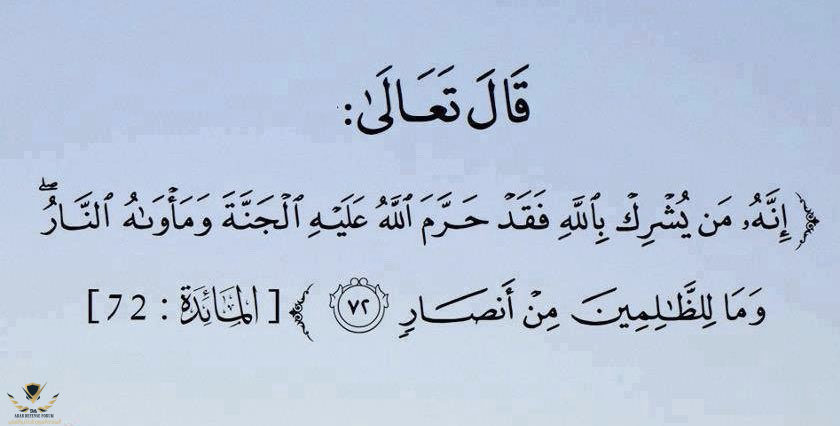 قَالَ تَعَالَىٰ:
﴿ إِنَّهُۥ مَن يُشْرِكْ بِٱللَّهِ فَقَدْ حَرَّمَ ٱللَّهُ عَلَيْهِ ٱلْجَنَّةَ وَمَأْوَىٰهُ ٱلنَّارُ ۖ
وَمَا لِلظَّـٰلِمِينَ مِنْ أَنصَارٍ ٧٢ ﴾ [المَائِدَة : 72]
ARAB DEFENSE FORUM